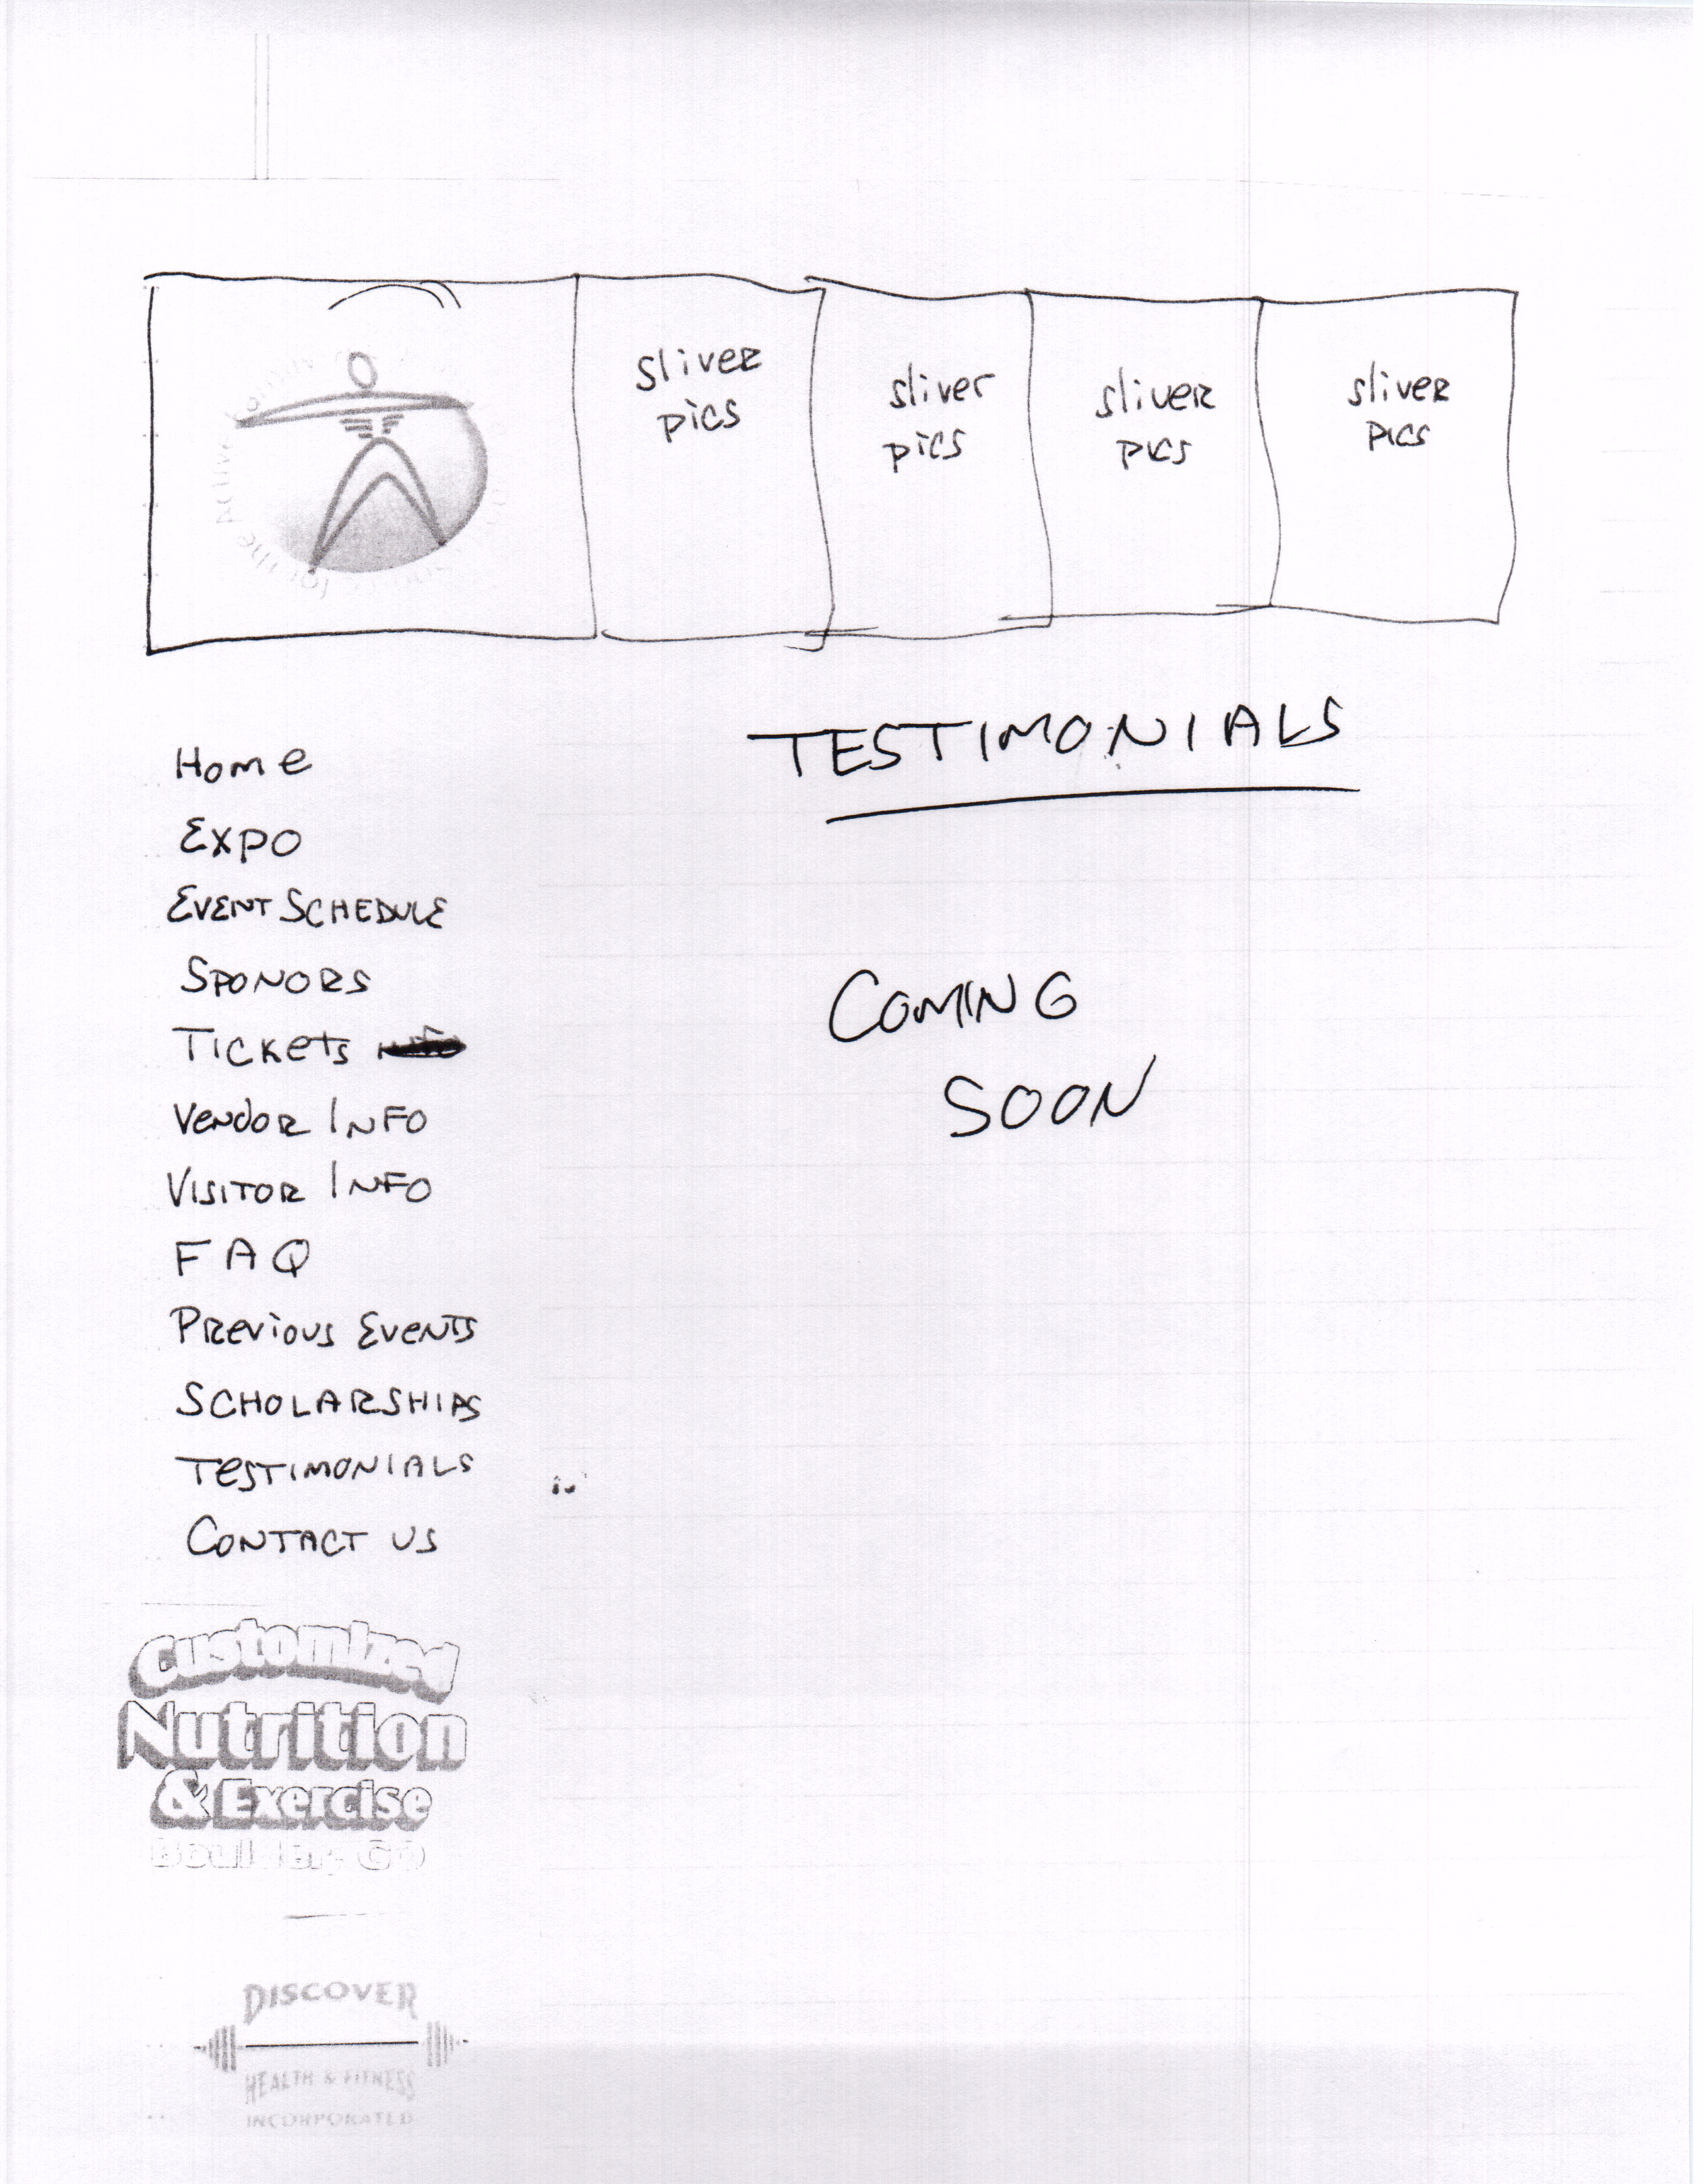 sliver
pics
sliver
pics
sliver
pics
sliver
pics
TESTIMONIALS
Home
Expo
EVENT SCHEDULE
SPONORS
Tickets
Vendor INFO
VISITOR INFO
FAQ
Previous Events
SCHOLARSHIPS
TESTIMONIALS
CONTACT US
COMING
SOON
Customized
Nutrition
& Exercise
Boulder, CO
DISCOVER
HEALTH & FITNESS
INCORPORATED
for the Active